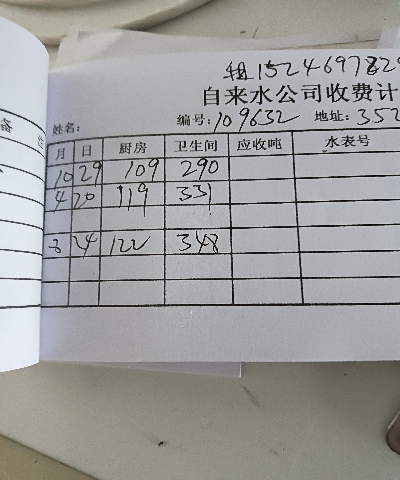 租15246978290
自来水公司收费计
姓名: 编号: 109632 地址: 352
备
月 日 厨房 卫生间 应收吨 水表号
10 29 109 290
4 20 119 331
24 122 348